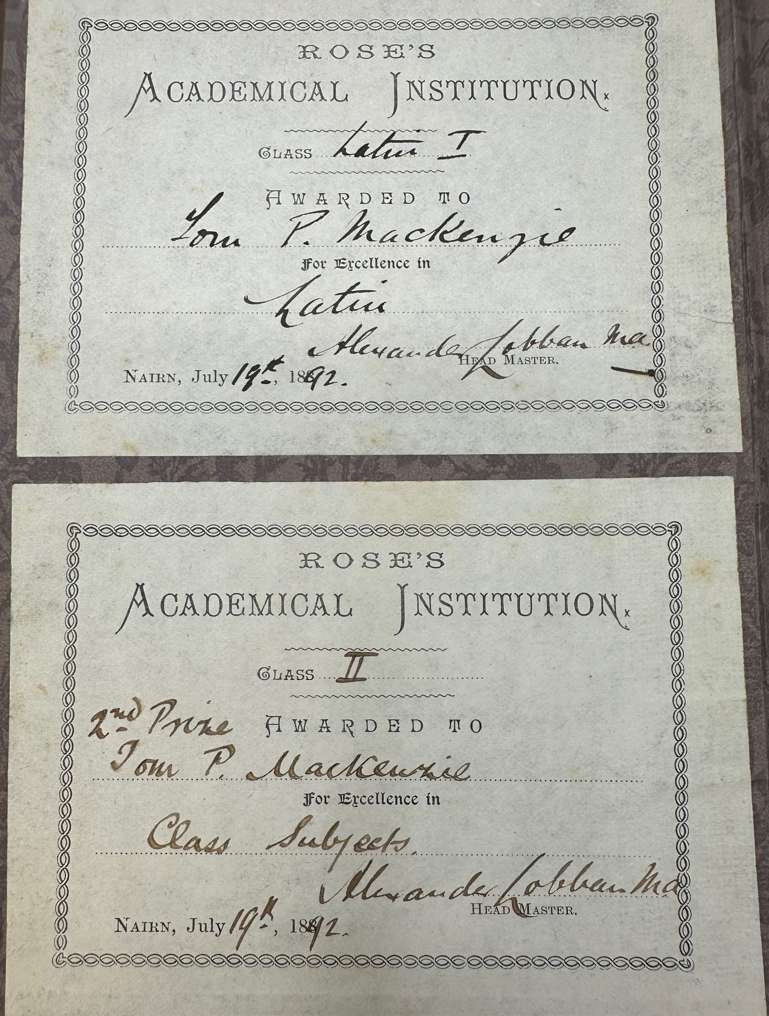 ROSE'S
ACADEMICAL INSTITUTION.
CLASS Latin I
AWARDED TO
Tom P. MacKenzie
For Excellence in
Latin
Alexander Lobban M.A.
HEAD MASTER.
NAIRN, July 19th, 1892.
ROSE'S
ACADEMICAL INSTITUTION.
CLASS II
2nd Prize AWARDED TO
Tom P. MacKenzie
For Excellence in
Class Subjects.
Alexander Lobban M.A.
HEAD MASTER.
NAIRN, July 19th, 1892.